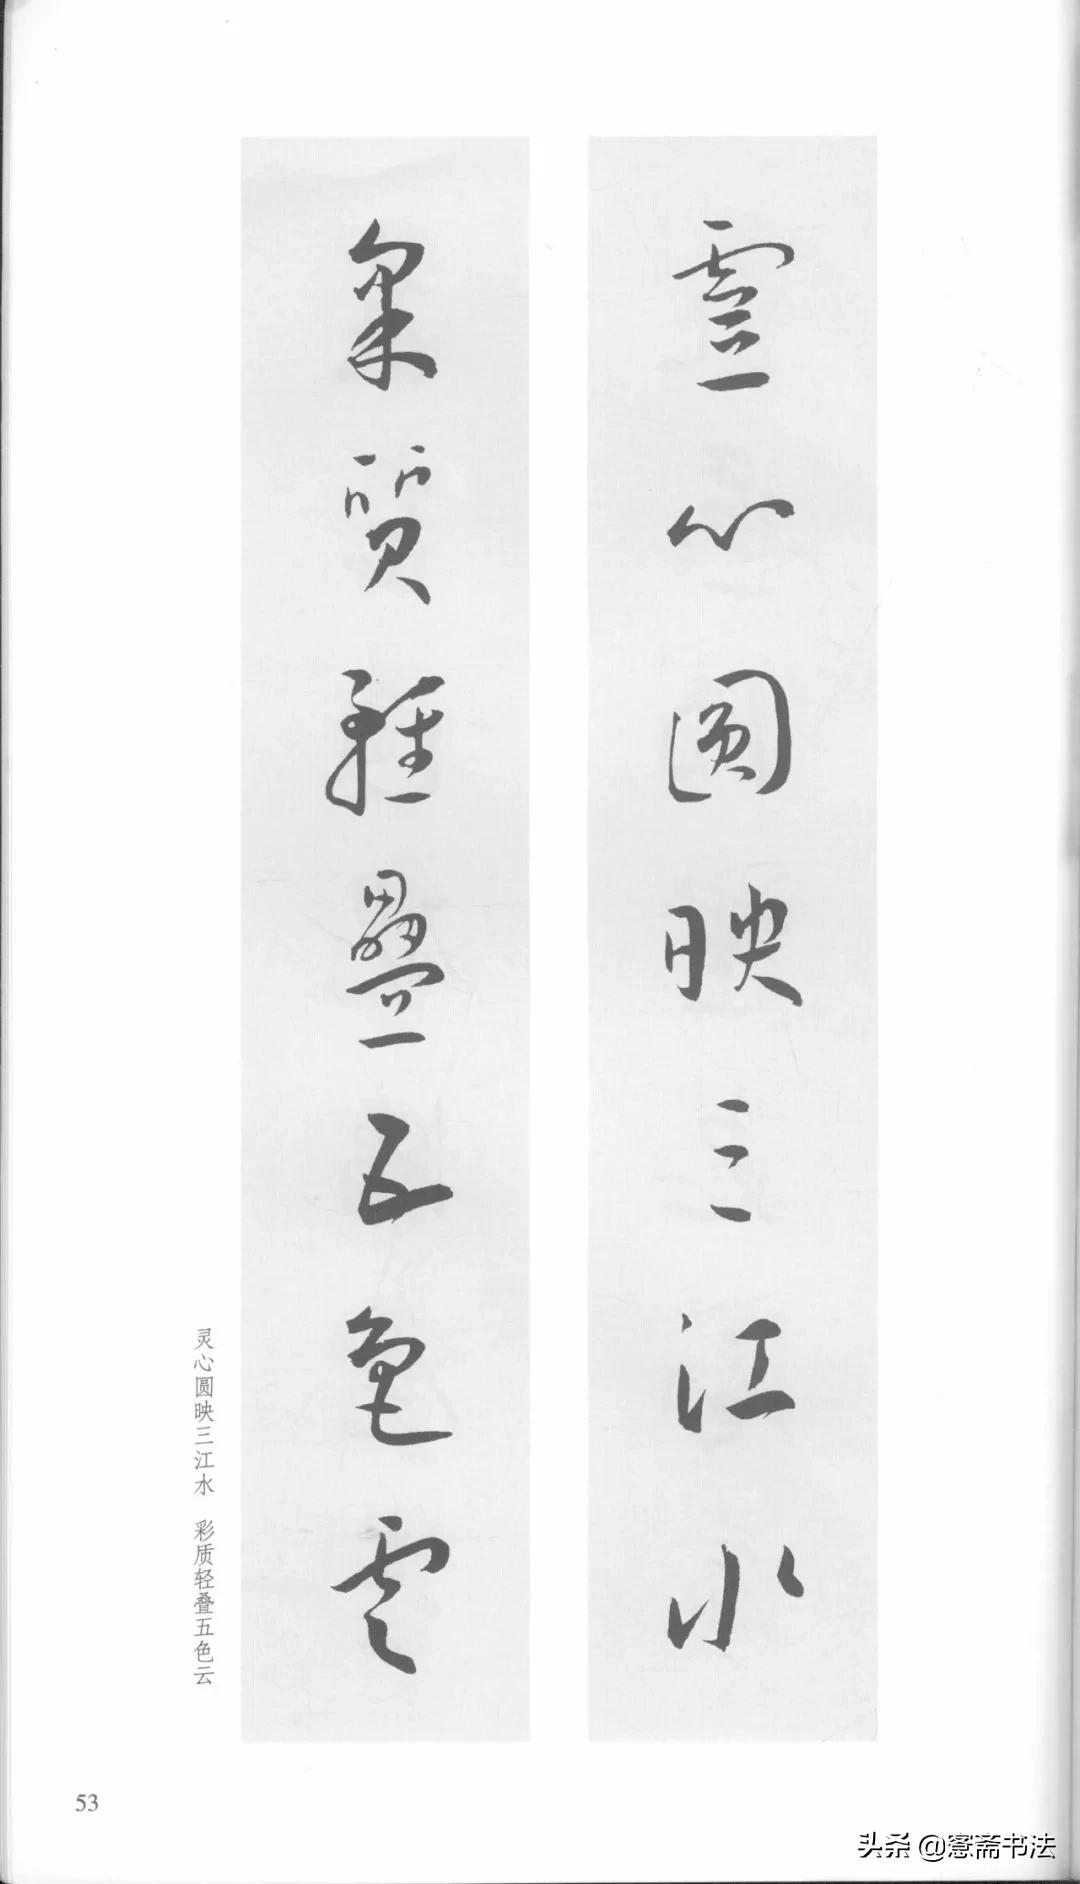 靈心圓映三江水
采質輕疊五色雲
灵心圆映三江水 彩质轻叠五色云
53
头条 @窓斋书法